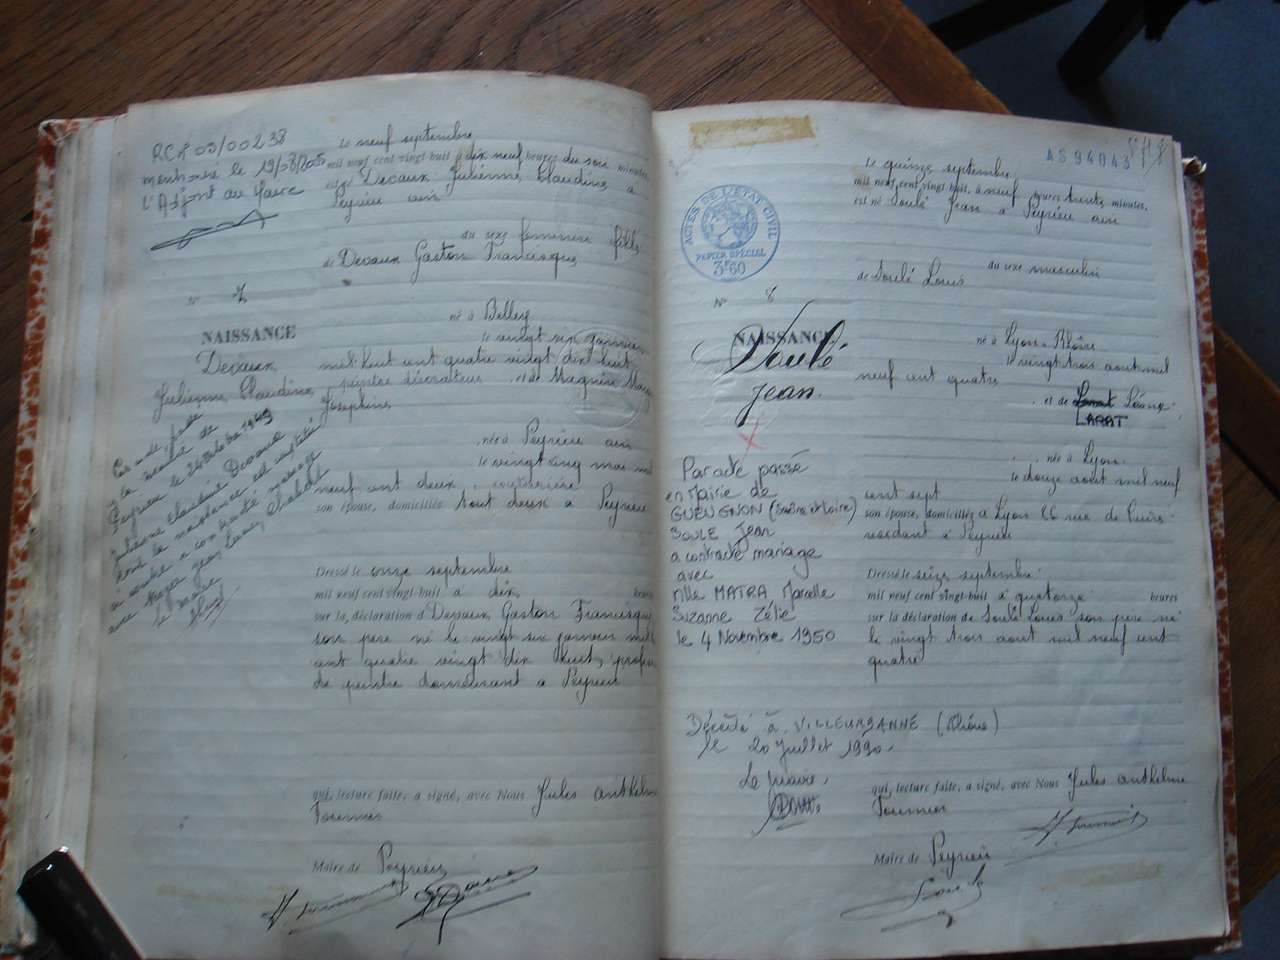 RC n° 03/00238
mentionné le 19/03/2005
l'Adjoint au Maire
Le neuf septembre
mil neuf cent vingt-huit à dix neuf heures du soir minutes,
est née Devaux Julienne Claudine à
Peyrieu ain
du sexe féminin fille
de Devaux Gaston Francisque
N° 7
NAISSANCE
Devaux
Julienne Claudine
né à Belley
le vingt six janvier
mil huit cent quatre vingt dix huit
peintre décorateur et de Magnin Marie
Joséphine
née à Peyrieu ain
le vingt cinq mai mil
neuf cent deux couturière
son épouse, domiciliés tout deux à Peyrieu
la mairie de
Peyrieu le 24 octobre 1949
Julienne Claudine Devaux
dont la naissance est
a contracté mariage
avec
le maire
Dressé le onze septembre
mil neuf cent vingt-huit à dix heures
sur la déclaration d Devaux Gaston Francisque
son père né le vingt six janvier mil
cent quatre vingt dix huit,
de peintre demeurant à Peyrieu
qui, lecture faite, a signé, avec Nous Jules Anthelme
Fournier
Maire de Peyrieu
AS94043
ACTES DE L'ÉTAT CIVIL
PAPIER SPÉCIAL
3F60
Le quinze septembre
mil neuf cent vingt-huit, à neuf heures trente minutes,
est né Soulé Jean à Peyrieu ain
du sexe masculin
de Soulé Louis
N° 8
NAISSANCE
Soulé
Jean
né à Lyon Rhône
le vingt trois aout mil
neuf cent quatre
et de Léone
LARAT
née à Lyon
le douze aout mil neuf
cent sept
son épouse, domiciliés à Lyon 26 rue de Cuire
résidant à Peyrieu
Par acte passé
en Mairie de
GUEUGNON (Saône et Loire)
SOULE Jean
a contracté mariage
avec
Mlle MATRA Marcelle
Suzanne Zélie
le 4 Novembre 1950
Dressé le seize septembre
mil neuf cent vingt-huit à quatorze heures
sur la déclaration de Soulé Louis son père né
le vingt trois aout mil neuf cent
quatre
Décédé à VILLEURBANNE (Rhône)
le 20 juillet 1990.
Le maire,
qui, lecture faite, a signé, avec Nous Jules Anthelme
Fournier
Maire de Peyrieu